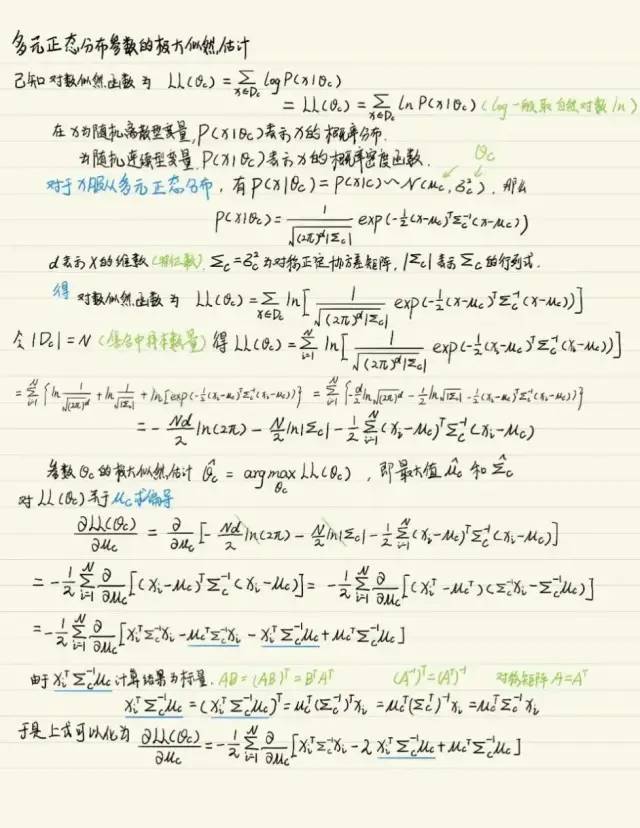 多元正态分布参数的极大似然估计
已知对数似然函数为 LL(θc) = Σ_{x∈Dc} log P(x|θc)
= LL(θc) = Σ_{x∈Dc} ln P(x|θc) (log一般取自然对数 ln)
在x为随机离散型变量, P(x|θc)表示x的概率分布.
为随机连续型变量, P(x|θc)表示x的概率密度函数. θc
对于x服从多元正态分布, 有 P(x|θc) = P(x|c) ~ N(μc, σc²), 那么
P(x|θc) = 1/√((2π)^d|Σc|) exp(-½(x-μc)^T Σc^{-1}(x-μc))
d表示x的维数, Σc = σc² 为对称正定协方差矩阵, |Σc| 表示Σc的行列式.
得 对数似然函数为 LL(θc) = Σ_{x∈Dc} ln[1/√((2π)^d|Σc|) exp(-½(x-μc)^T Σc^{-1}(x-μc))]
令|Dc| = N (集合中样本数量) 得 LL(θc) = Σ_{i=1}^N ln[1/√((2π)^d|Σc|) exp(-½(xi-μc)^T Σc^{-1}(xi-μc))]
= Σ_{i=1}^N {ln 1/√(2π)^d + ln 1/√|Σc| + ln[exp(-½(xi-μc)^T Σc^{-1}(xi-μc))]} = Σ_{i=1}^N {-d/2 ln√(2π)^d - ½ ln√|Σc| - ½(xi-μc)^T Σc^{-1}(xi-μc)}
= - Nd/2 ln(2π) - N/2 ln|Σc| - ½ Σ_{i=1}^N (xi-μc)^T Σc^{-1}(xi-μc)
参数θc的极大似然估计 θ̂c = argmax_{θc} LL(θc), 即最大值 μ̂c 和 Σ̂c
对 LL(θc) 关于 μc 求偏导
∂LL(θc)/∂μc = ∂/∂μc [- Nd/2 ln(2π) - N/2 ln|Σc| - ½ Σ_{i=1}^N (xi-μc)^T Σc^{-1}(xi-μc)]
= -½ Σ_{i=1}^N ∂/∂μc [(xi-μc)^T Σc^{-1}(xi-μc)] = -½ Σ_{i=1}^N ∂/∂μc [(xi^T-μc^T)(Σc^{-1}xi - Σc^{-1}μc)]
= -½ Σ_{i=1}^N ∂/∂μc [xi^T Σc^{-1}xi - μc^T Σc^{-1}xi - xi^T Σc^{-1}μc + μc^T Σc^{-1}μc]
由于 xi^T Σc^{-1}μc 计算结果为标量. AB = (AB)^T = B^T A^T (A^{-1})^T = (A^T)^{-1} 对称矩阵 A = A^T
xi^T Σc^{-1}μc = (xi^T Σc^{-1}μc)^T = μc^T(Σc^{-1})^T xi = μc^T(Σc^T)^{-1} xi = μc^T Σc^{-1} xi
于是上式可以化为 ∂LL(θc)/∂μc = -½ Σ_{i=1}^N ∂/∂μc [xi^T Σc^{-1}xi - 2 xi^T Σc^{-1}μc + μc^T Σc^{-1}μc]